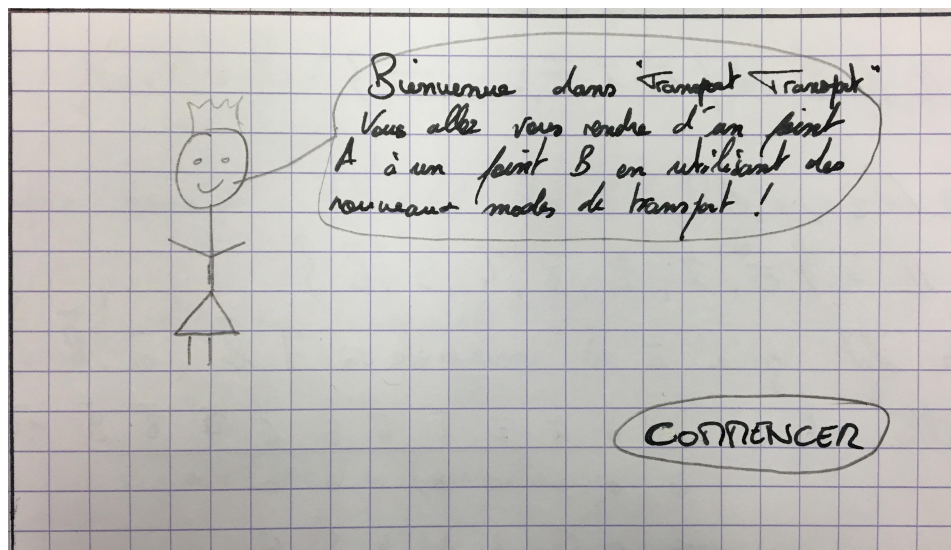 Bienvenue dans "Transport Transport"
Vous allez vous rendre d'un point
A à un point B en utilisant des
nouveaux modes de transport !
COMMENCER